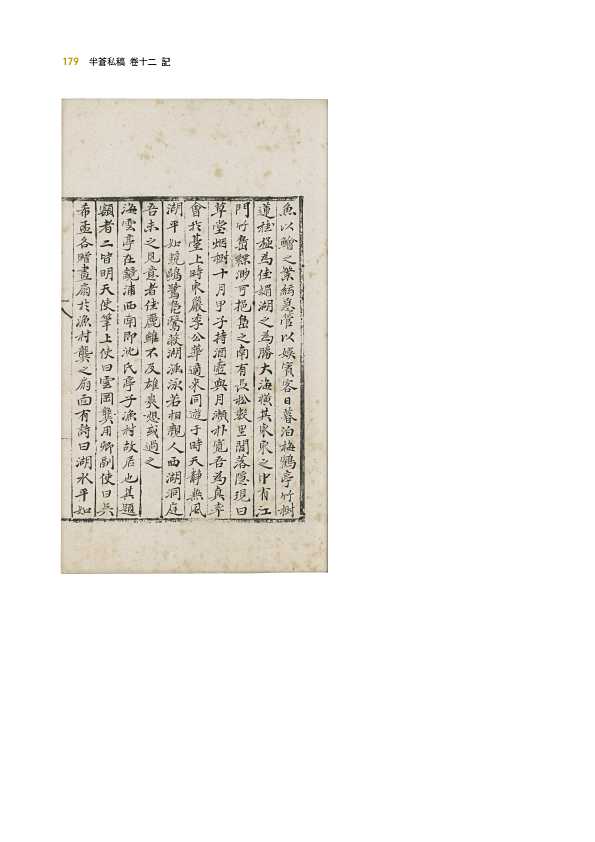 179 半蒼私稿 卷十二 記
魚以鱠之業絲急管以娛賓客日暮泊梅鶴亭竹樹
蓮桂極爲佳媚湖之爲勝大海橫其東東之中有江
門竹島縹渺可挹島之南有長松數里閭落隱現曰
草堂烟樹十月甲子持酒壺與月瀨朴寬吾爲真率
會於臺上時東嚴李公華適來同遊于時天靜無風
湖平如鏡鷗鷺鳧鷖蔽湖涵泳若相親人西湖洞庭
吾未之見意者佳麗雖不及雄爽想或過之
海雲亭在鏡浦西南即沈氏亭子漁村故居也其題
額者二皆明天使筆上使曰雲岡龔用卿副使曰吳
希孟各贈畫扇於漁村龔之扇面有詩曰湖水平如